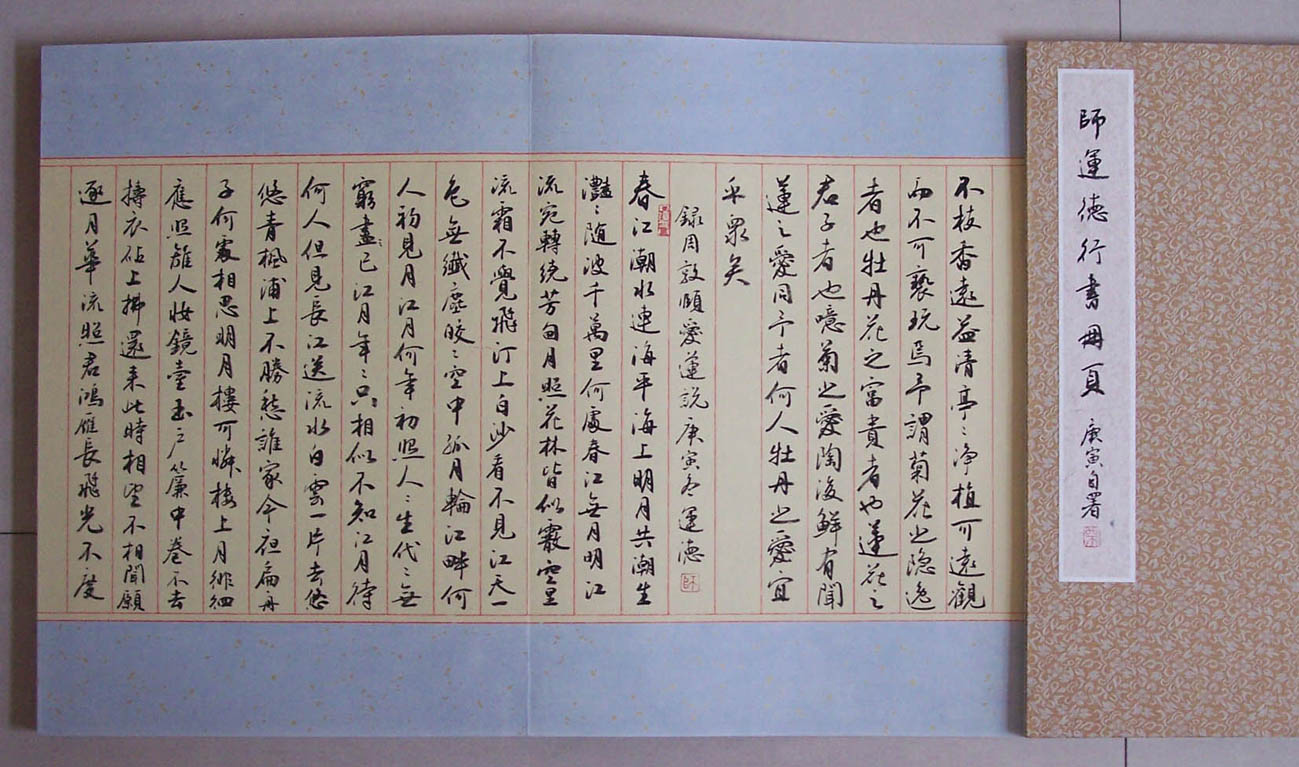 師運德行書冊頁
庚寅自署
不枝香遠益清亭〻淨植可遠觀
而不可褻玩焉予謂菊花之隐逸
者也牡丹花之富貴者也蓮花之
君子者也噫菊之愛陶後鮮有聞
蓮之愛同予者何人牡丹之愛宜
乎眾矣
録周敦頤愛蓮說庚寅冬運德
春江潮水連海平海上明月共潮生
灩〻随波千萬里何處春江無月明江
流宛轉繞芳甸月照花林皆似霰空里
流霜不覺飛汀上白沙看不見江天一
色無纖塵皎〻空中孤月輪江畔何
人初見月江月何年初照人〻生代〻無
窮盡已江月年〻只相似不知江月待
何人但見長江送流水白雲一片去悠
悠青楓浦上不勝愁誰家今夜扁舟
子何處相思明月樓可憐樓上月徘徊
應照離人妝鏡臺玉戶簾中卷不去
搗衣砧上拂還来此時相望不相聞願
逐月華流照君鴻雁長飛光不度